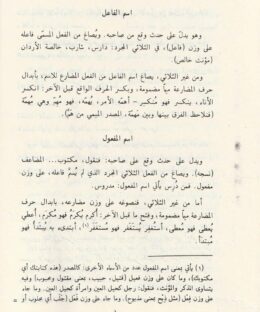 اسم الفاعل
وهو يدلّ على حدث وقع من صاحبه. ويصاغ من الفعل المسمّى فاعله
على وزن (فاعل)، في الثلاثي المجرد: دارس، شارب، خالصة الأردان
(مؤنث خالص)
ومن غير الثلاثي، يصاغ اسم الفاعل من الفعل المضارع للاسم، بأبدال
حرف المضارعة مياً مضمومة، وبكسر الحرف الواقع قبل الآخر: انكسر
الأناء، ينكسر فهو مُنكسِر - أهمّه الأمر، يُهِمّه، فهو مُهِمّ وهي مُهِمّة
(فتلاحظ الفرق بينها وبين مَهَمّة، المصدر الميمي من همّ).
اسم المفعول
ويدل على حدث وقع على صاحبه: فتقول، مكتوب... المضاعف
(نسجة). ويصاغ من الفعل الثلاثي المجرد الذي لم يُسَمَّ فاعله، على وزن
مفعول. فمن دُرِس يأتي اسم المفعول: مدروس.
أما من غير الثلاثي، فنصوغه على وزن مضارعه، بابدال حرف
المضارعة مياً مضمومة، وفتح ما قبل الآخر: أُكرِم يُكرَمُ فهو مُكرَم، أُعطي
يُعطى فهو مُعطى، أُستُغفِر يُستَغفَر فهو مُستَغفَر(١)، أُبتدىء به يُبتدأ فهو
مُبتدأ.
(١) يأتي بمعنى اسم المفعول عدد من الأسماء الأخرى: كالصدر (هذه كتابتك أي
مكتوبك)، وما كان على وزن فعيل (قتيل، حبيب، بمعنى مقتول ومحبوب) وفيه
يتساوى الذكر والمؤنث، فتقول: رجل كحيل العين وامرأة كحيل العين. وما جاء
على وزن فِعْل (مثل ذِبح بمعنى مذبوح). وما جاء على وزن فَعَل (جَلَب أي مجلوب أو